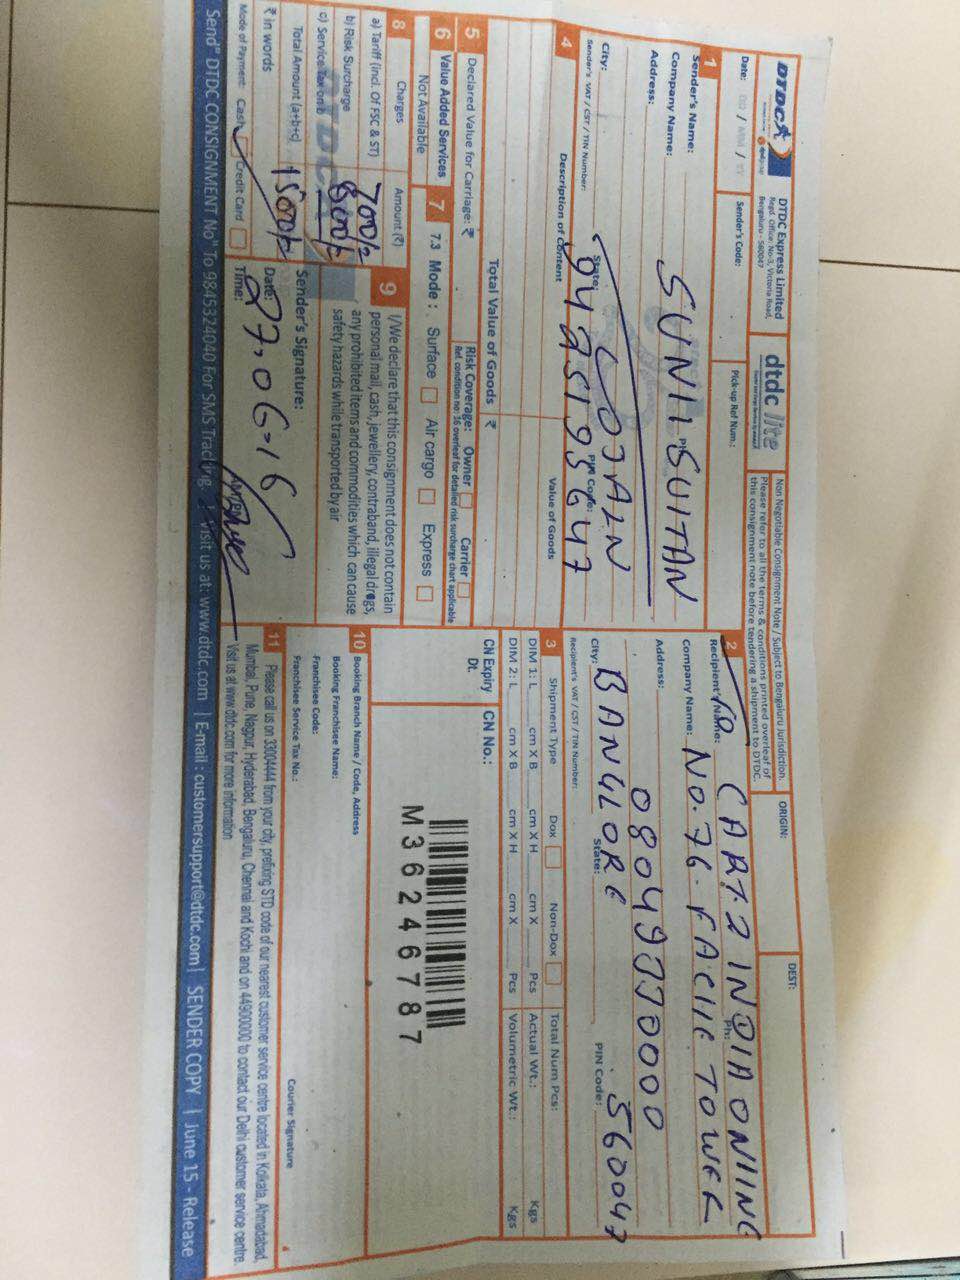 DTDC
DTDC Express Limited
Regd. Office: No-3, Victoria Road,
Bengaluru - 560047
dtdc lite
Non Negotiable Consignment Note / Subject to Bengaluru Jurisdiction.
Please refer to all the terms & conditions printed overleaf of
this consignment note before tendering a shipment to DTDC.
ORIGIN:
DEST:
Date:
Sender's Code:
Pick-up Ref Num.:
1
Sender's Name:
SUNIL SUITAN
Company Name:
Address:
City:
State:
PIN Code:
Sender's VAT / CST / TIN Number:
9449519564
2
Recipient's Name:
CART2 IN@IA ONIINE
Ph:
Company Name:
NO.76 - FACIIE TOWER
Address:
City:
BANGLORE
State:
PIN Code:
560047
Recipient's VAT / CST / TIN Number:
4
Description of Content
Value of Goods
Total Value of Goods ₹
3
Shipment Type
Dox
Non-Dox
Total Num Pcs:
DIM 1: L cm X B cm X H cm X Pcs
Actual Wt.: Kgs
DIM 2: L cm X B cm X H cm X Pcs
Volumetric Wt.: Kgs
5
Declared Value for Carriage: ₹
Risk Coverage: Owner Carrier
Ref. condition no: 16 overleaf for detailed risk surcharge chart applicable
6
Value Added Services
Not Available
7
7.3 Mode : Surface Air cargo Express
CN Expiry Dt.
CN No.:
M36246787
8
Charges
Amount (₹)
a) Tariff (incl. Of FSC & ST)
700/-
b) Risk Surcharge
800/-
c) Service
Total Amount (a+b+c)
1500/-
₹ in words
Mode of Payment: Cash Credit Card
9
I/We declare that this consignment does not contain
personal mail, cash, jewellery, contraband, illegal drugs,
any prohibited items and commodities which can cause
safety hazards while transported by air
Sender's Signature:
Date:
27.06-16
Time:
10
Booking Branch Name / Code, Address
Booking Franchisee Name:
Franchisee Code:
Franchisee Service Tax No.:
Courier Signature
11
Please call us on 33004444 from your city, prefixing STD code of our nearest customer service centre located in Kolkata, Ahmadabad,
Mumbai, Pune, Nagpur, Hyderabad, Bengaluru, Chennai and Kochi and on 44900000 to contact our Delhi customer service centre.
Visit us at www.dtdc.com for more information
Send" DTDC CONSIGNMENT No" To 9845324040 For SMS Tracking Visit us at: www.dtdc.com | E-mail : customersupport@dtdc.com | SENDER COPY | June 15 - Release